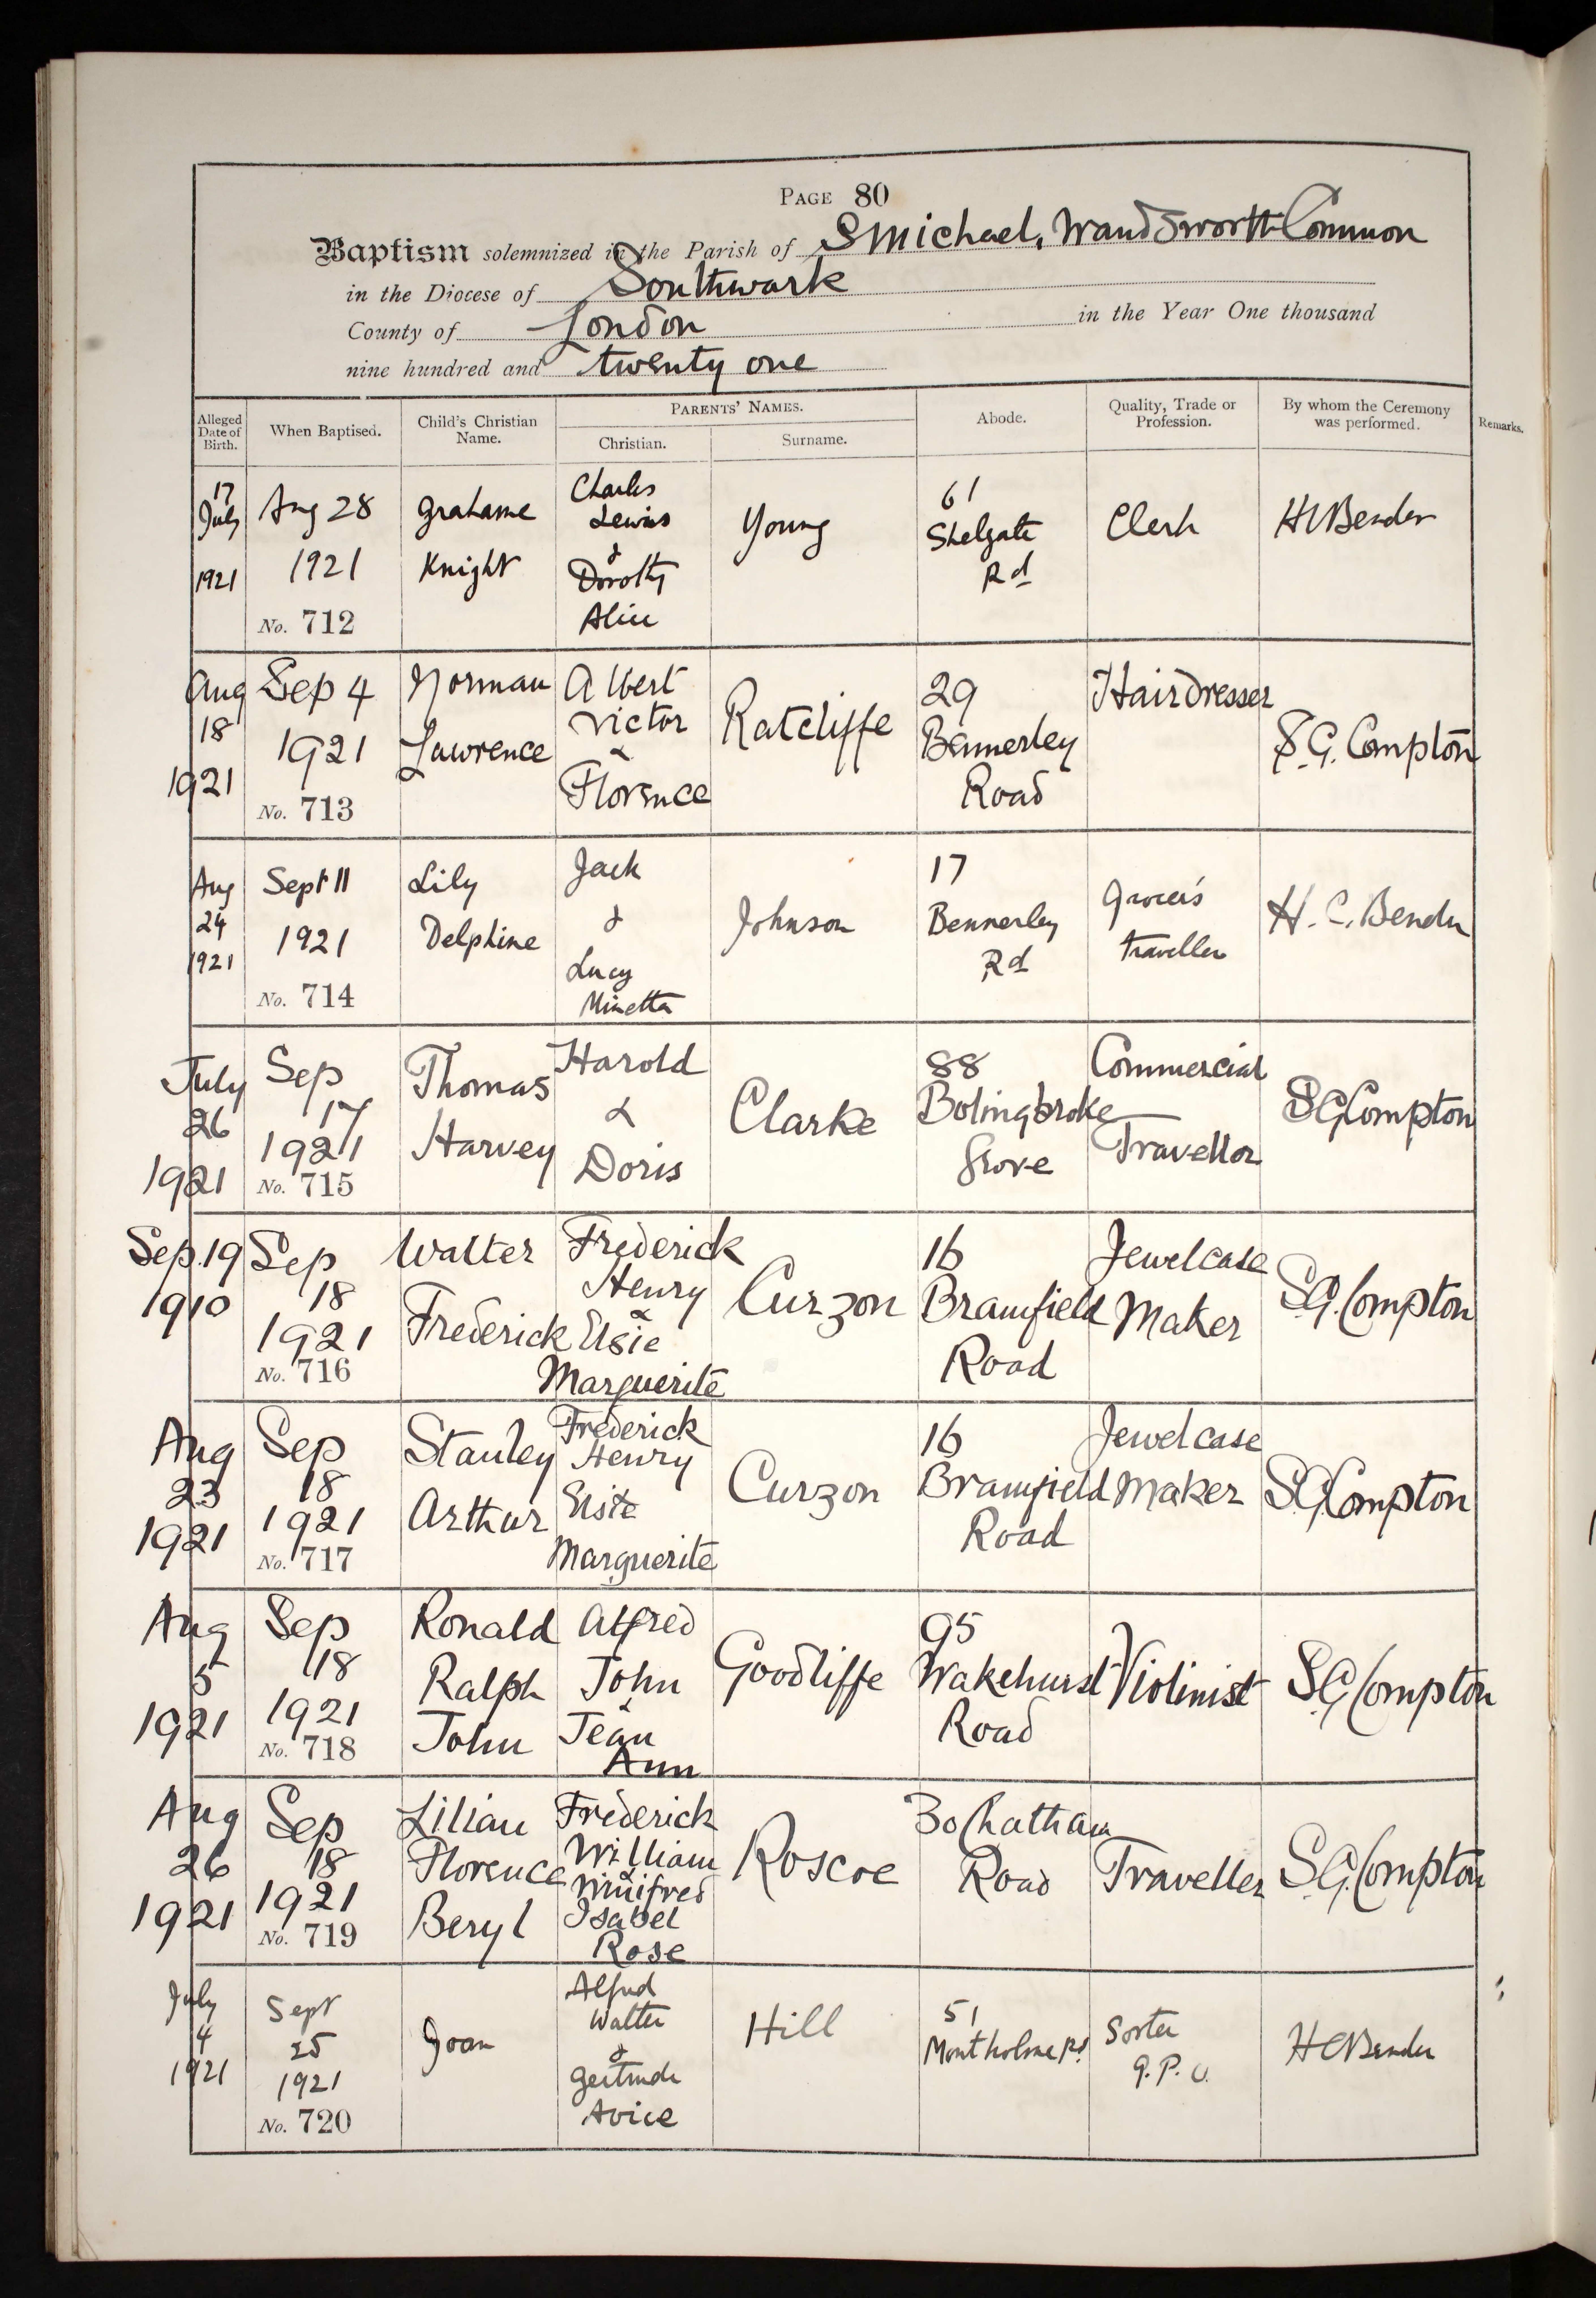 PAGE 80
Baptism solemnized in the Parish of S Michael, Wandsworth Common
in the Diocese of Southwark
County of London in the Year One thousand
nine hundred and twenty one
Alleged Date of Birth.
When Baptised.
Child's Christian Name.
PARENTS' NAMES.
Christian.
Surname.
Abode.
Quality, Trade or Profession.
By whom the Ceremony was performed.
Remarks.
17 July 1921
Aug 28 1921
No. 712
Grahame Knight
Charles Lewis & Dorothy Alice
Young
61 Shelgate Rd
Clerk
HCBender
Aug 18 1921
Sep 4 1921
No. 713
Norman Lawrence
Albert Victor & Florence
Ratcliffe
29 Bennerley Road
Hairdresser
S.G. Compton
Aug 24 1921
Sept 11 1921
No. 714
Lily Delphine
Jack & Lucy Minetta
Johnson
17 Bennerley Rd
Grocer's traveller
H. C. Bender
July 26 1921
Sep 17 1921
No. 715
Thomas Harvey
Harold & Doris
Clarke
88 Bolingbroke Grove
Commercial Travellor
S.G.Compton
Sep. 19 1910
Sep 18 1921
No. 716
Walter Frederick
Frederick Henry & Elsie Marguerite
Curzon
16 Bramfield Road
Jewelcase Maker
S.G. Compton
Aug 23 1921
Sep 18 1921
No. 717
Stanley Arthur
Frederick Henry Elsie Marguerite
Curzon
16 Bramfield Road
Jewelcase Maker
S.G.Compton
Aug 5 1921
Sep 18 1921
No. 718
Ronald Ralph John
Alfred John & Jean Ann
Goodliffe
95 Wakehurst Road
Violinist
S.G.Compton
Aug 26 1921
Sep 18 1921
No. 719
Lilian Florence Beryl
Frederick William & Winifred Isabel Rose
Roscoe
30 Chatham Road
Traveller
S.G.Compton
July 4 1921
Sept 25 1921
No. 720
Joan
Alfred Walter & Gertrude Avice
Hill
51 Montholme Rd
Sorter G.P.O.
HCBender